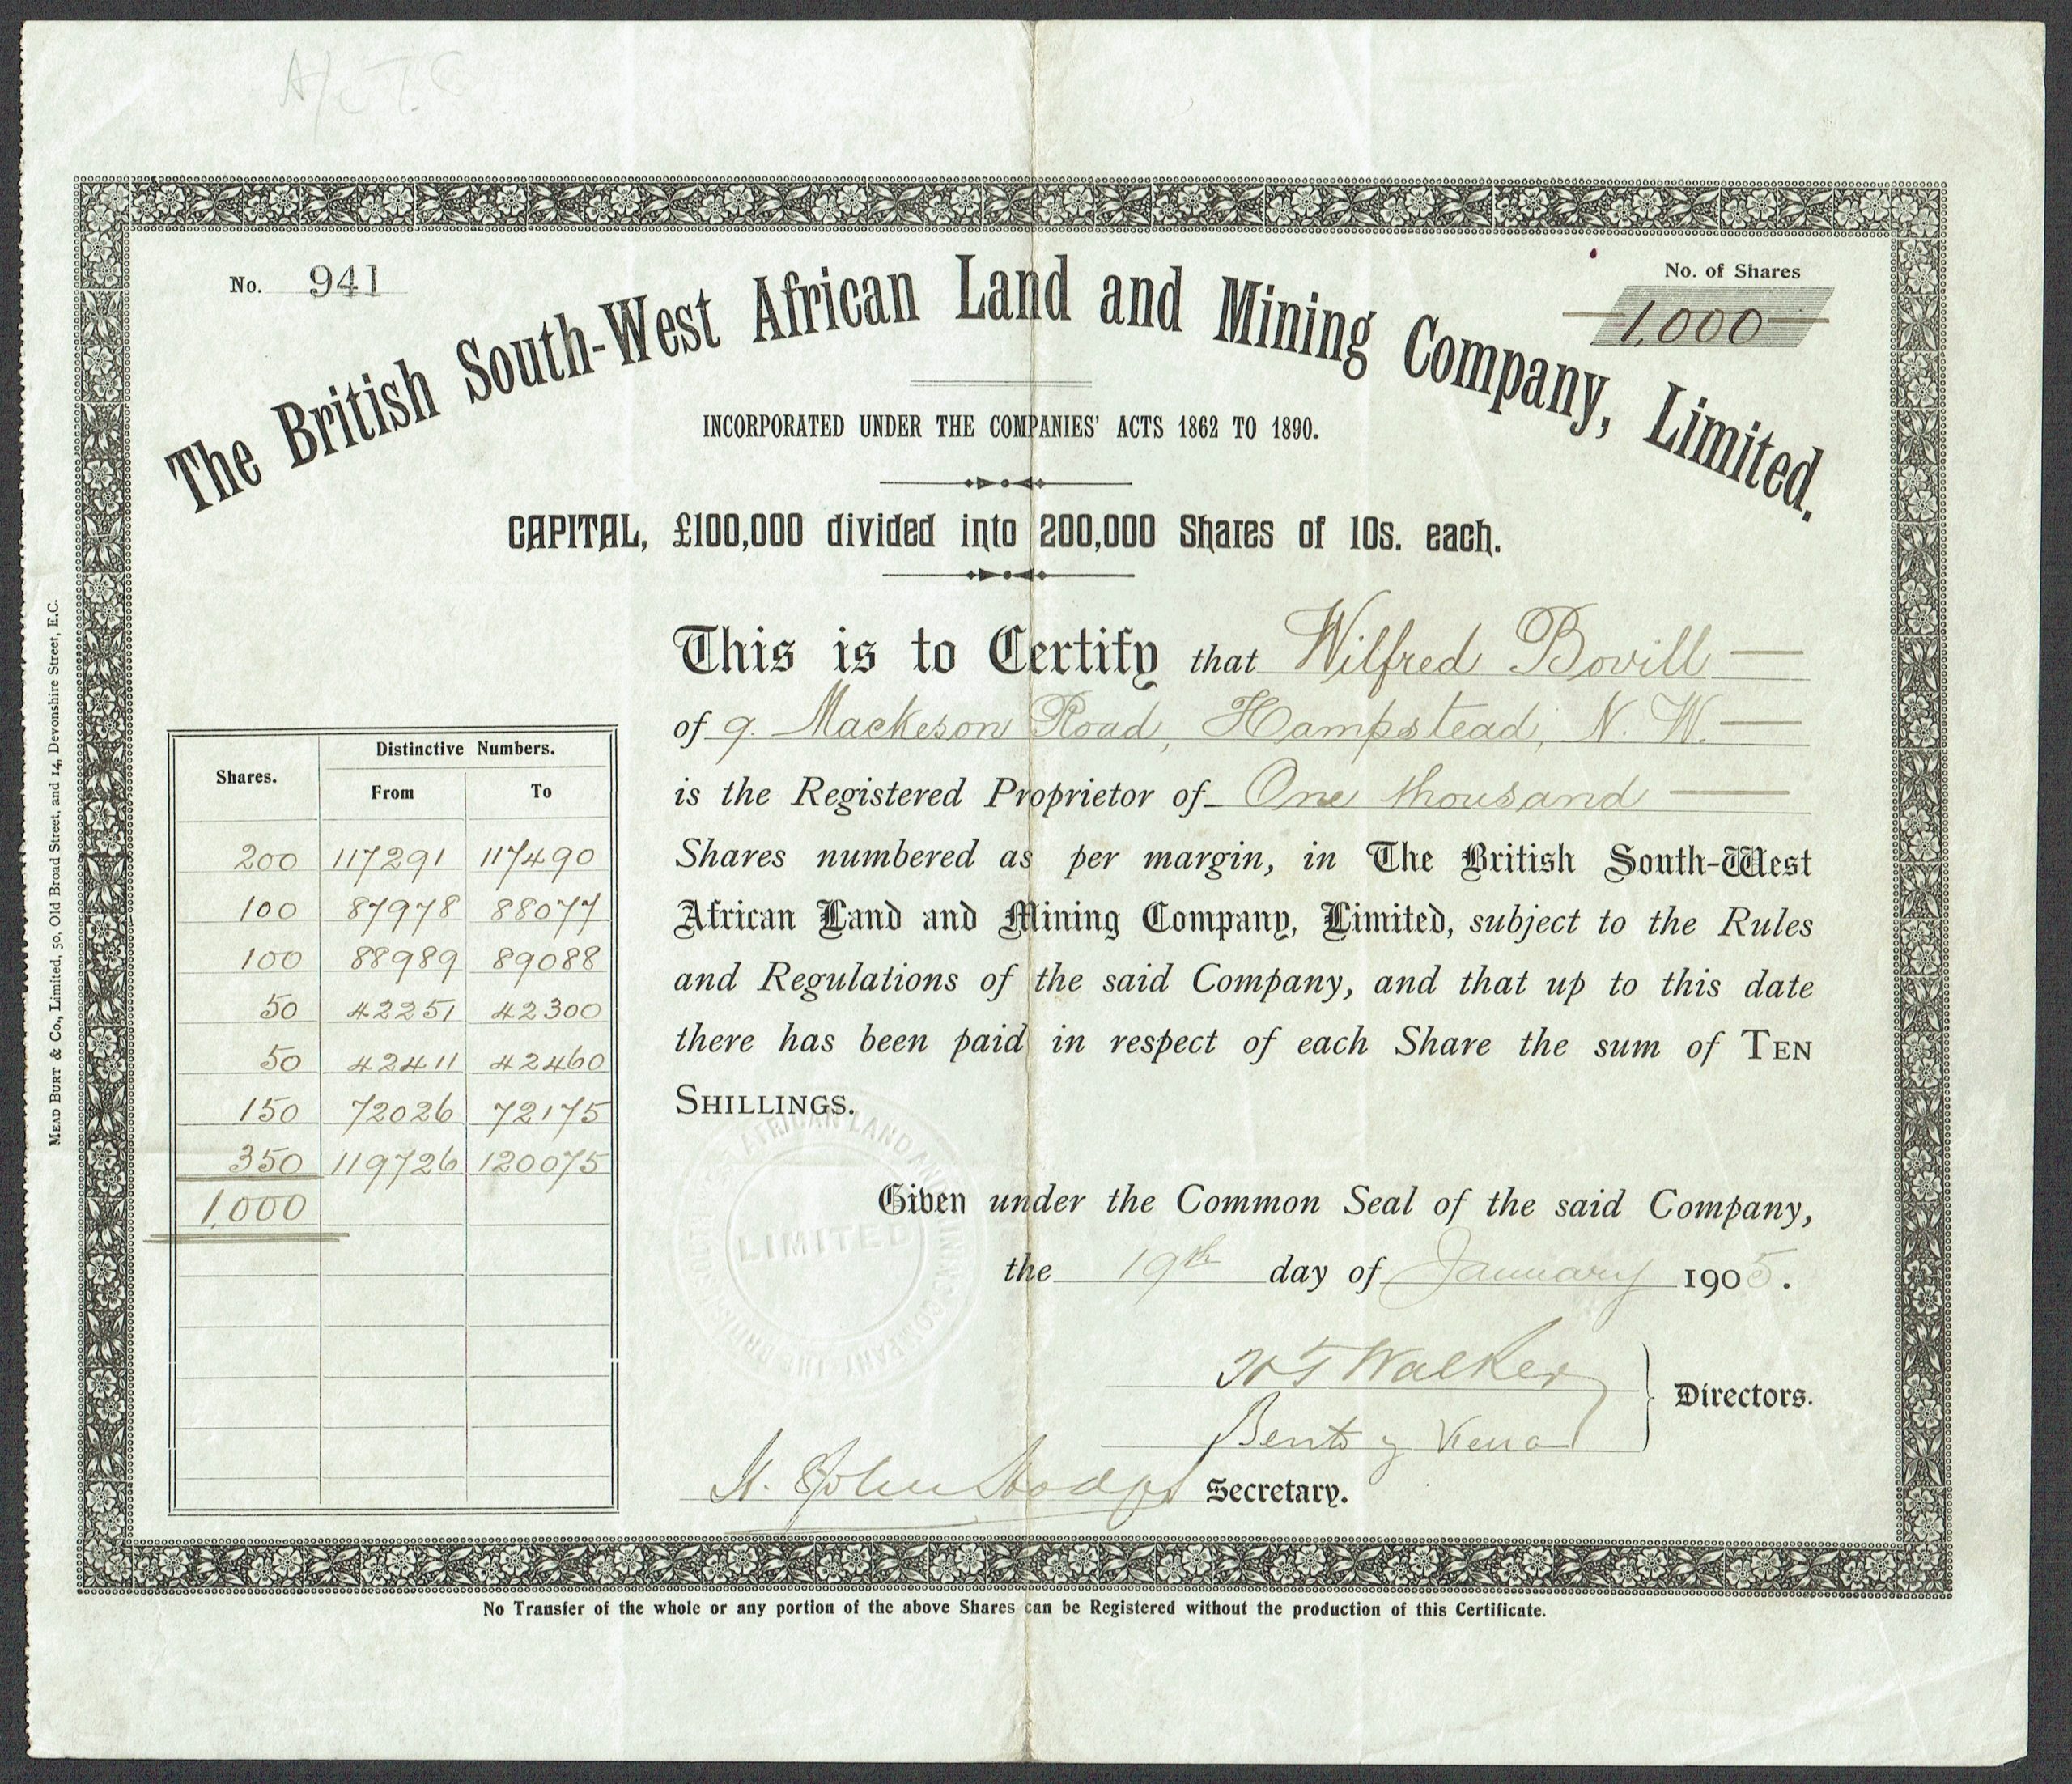 No. 941
No. of Shares
1,000
The British South-West African Land and Mining Company, Limited.
INCORPORATED UNDER THE COMPANIES' ACTS 1862 TO 1890.
CAPITAL, £100,000 divided into 200,000 Shares of 10s. each.
This is to Certify that Wilfred Bovill
of 9. Mackeson Road, Hampstead, N. W.
is the Registered Proprietor of One thousand
Shares numbered as per margin, in The British South-West
African Land and Mining Company, Limited, subject to the Rules
and Regulations of the said Company, and that up to this date
there has been paid in respect of each Share the sum of TEN
SHILLINGS.
Shares. Distinctive Numbers.
From To
200 117291 117490
100 87978 88077
100 88989 89088
50 42251 42300
50 42411 42460
150 72026 72175
350 119726 120075
1,000
Given under the Common Seal of the said Company,
the 19th day of January 1905.
Walker
Directors.
John Secretary.
AFRICAN LAND AND MINING COMPANY THE BRITISH
LIMITED
No Transfer of the whole or any portion of the above Shares can be Registered without the production of this Certificate.
MEAD BURT & Co., Limited, 50, Old Broad Street, and 14, Devonshire Street, E.C.